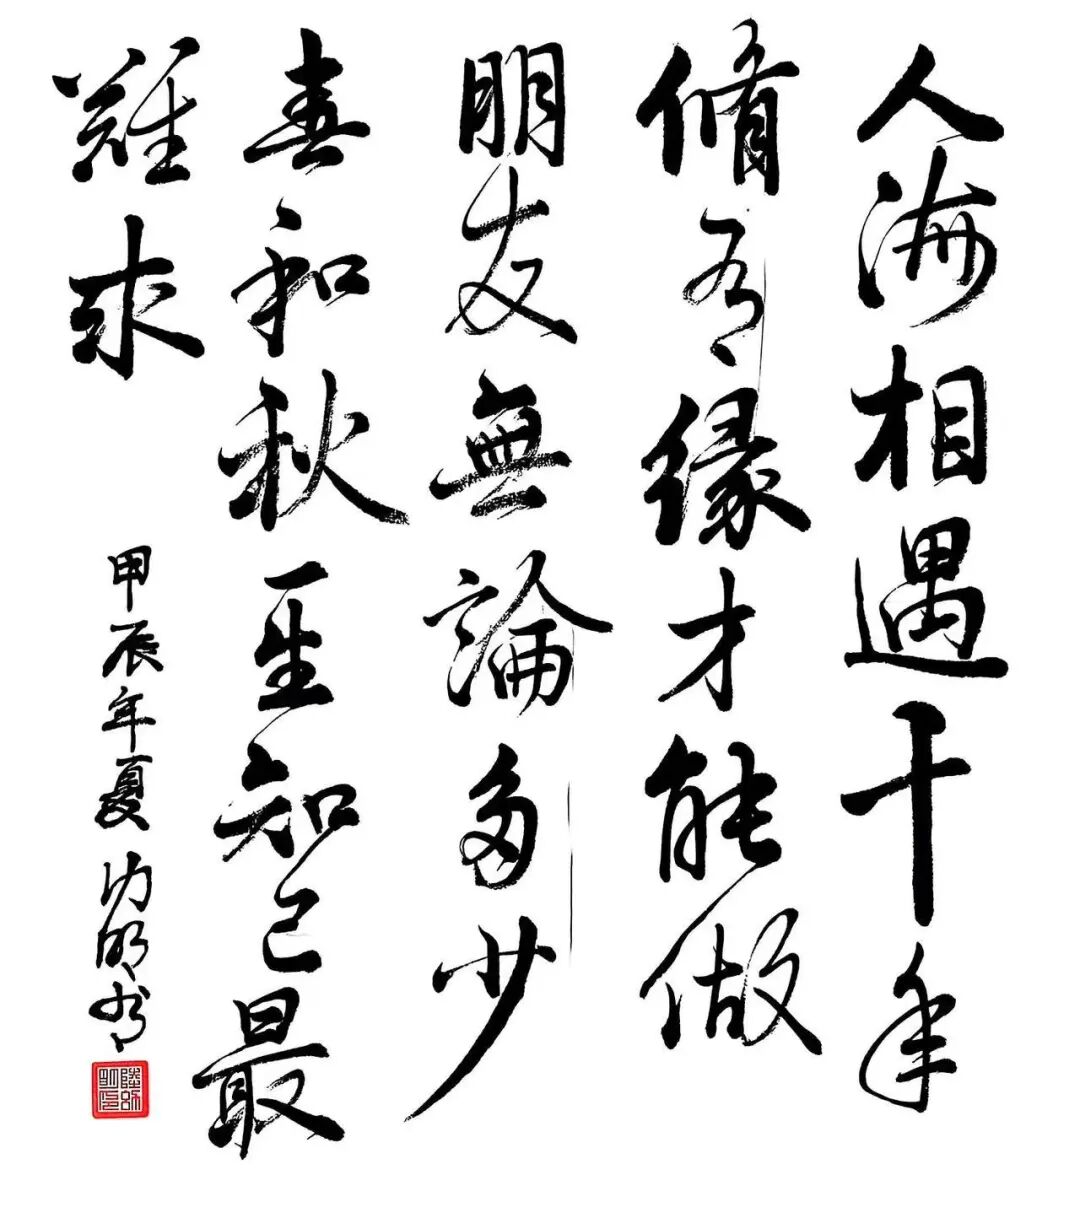 人海相遇千年
脩有緣才能做
朋友無論多少
春和秋一生知己最
難求
甲辰年夏 明书